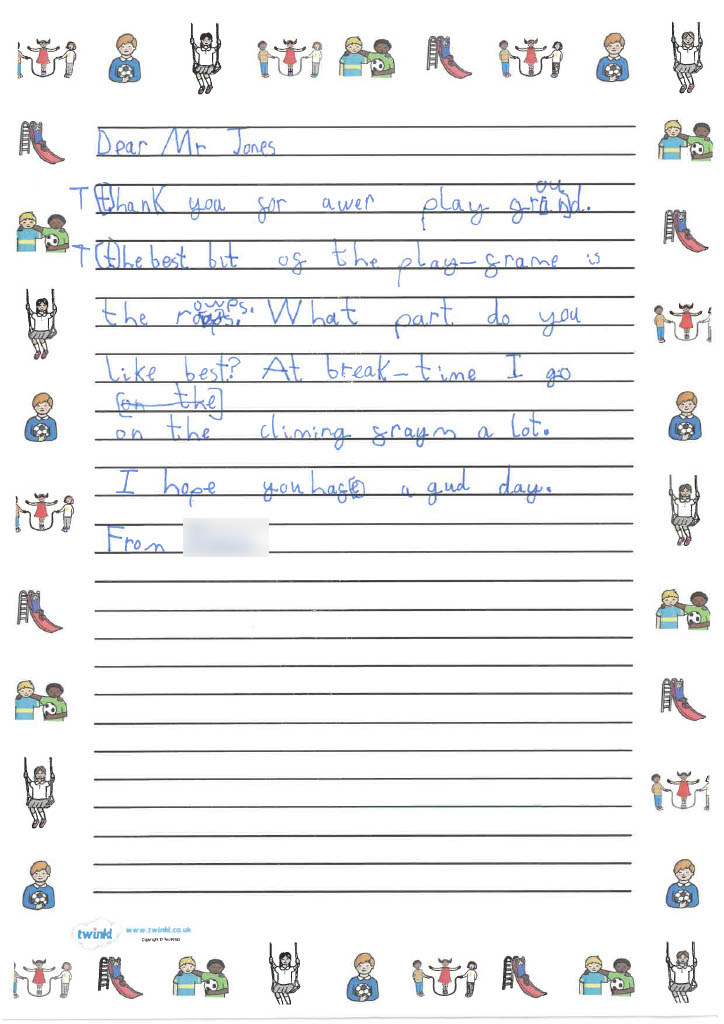 Dear Mr Jones
T(t)hank you for awer playground.
T(t)he best bit of the play-frame is
the rowps. What part do you
like best? At break-time I go
[on the]
on the climing fraym a lot.
I hope you hafe a gud day.
From
twinkl www.twinkl.co.uk